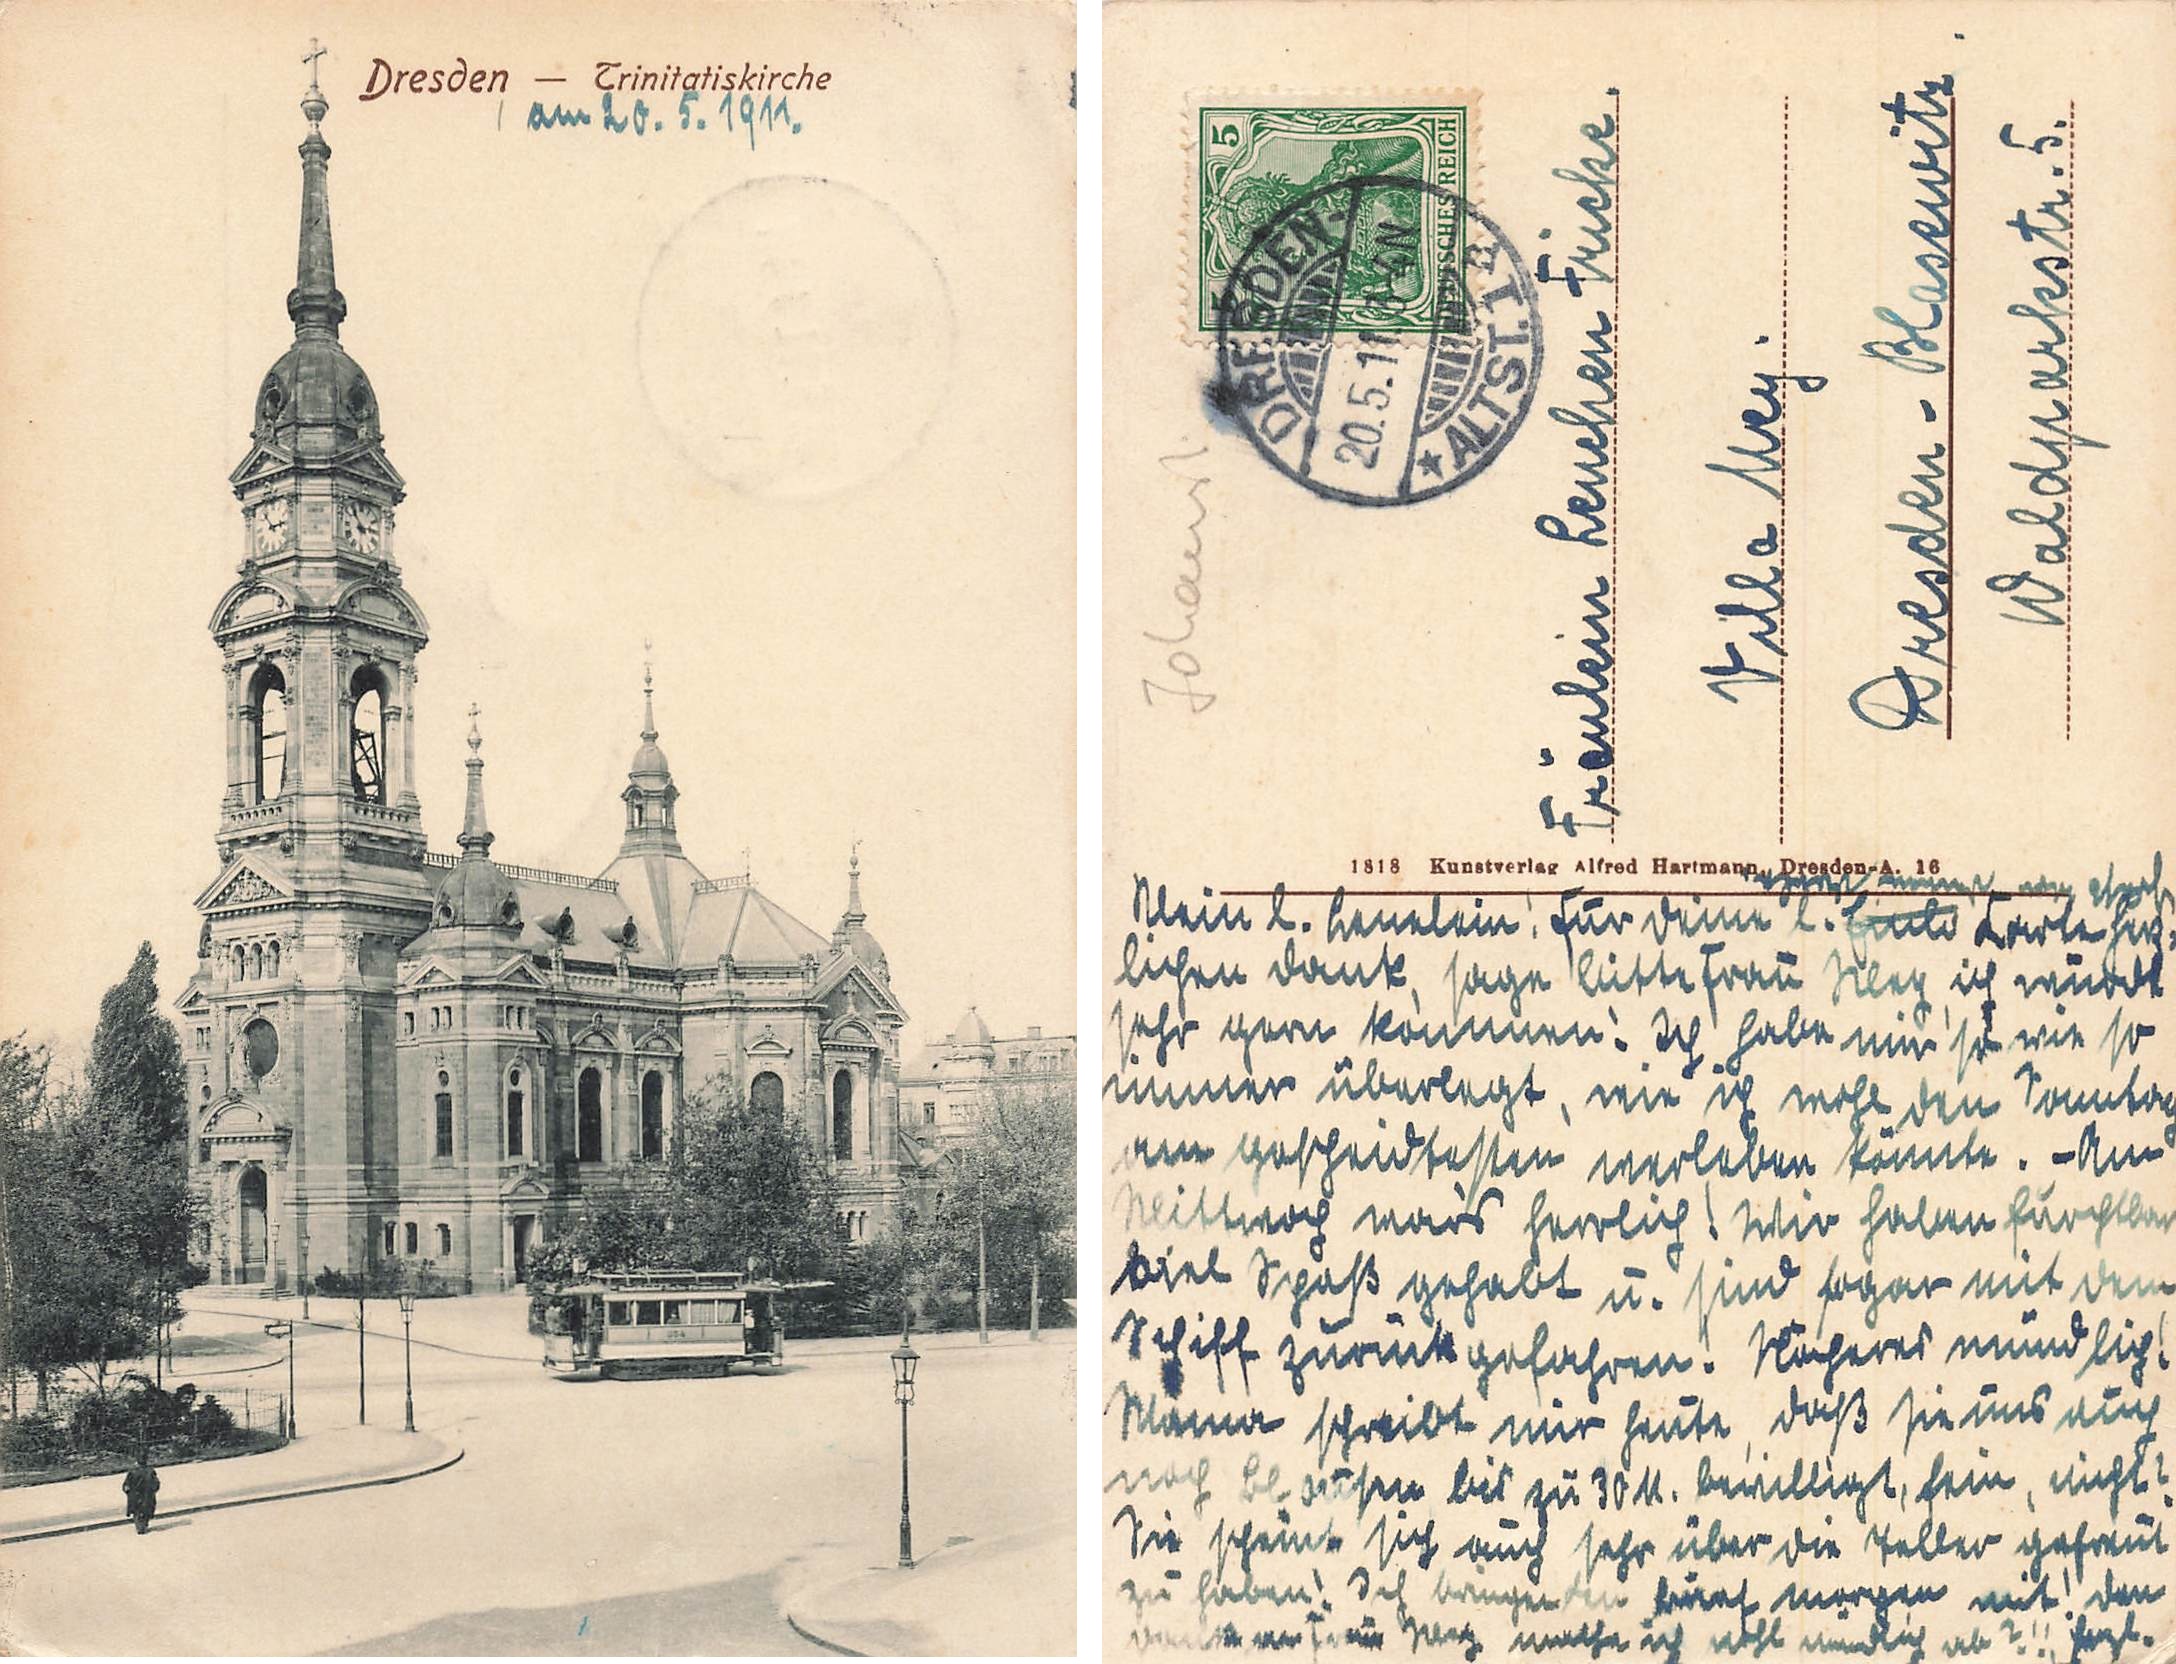 Dresden — Trinitatiskirche
am 20. 5. 1911.
354
5
5
DEUTSCHES REICH
DRESDEN-
20.5.11. 3-4N
* ALTST. 1 e
Johanst.
Fräulein Lenchen Fricke.
Villa Mey.
Dresden - Blasewitz
Waldparkstr. 5.
1818 Kunstverlag Alfred Hartmann, Dresden-A. 16
Mein l. Lenelein! Für deine l. Karte herz-
lichen Dank, sage bitte Frau Mey, ich würde
sehr gern kommen! Ich habe mir so wie so
immer überlegt, wie ich wohl den Sonntag
am gescheidtesten verleben könnte. - Am
Mittwoch war's herrlich! Wir haben furchtbar
viel Spaß gehabt u. sind sogar mit dem
Schiff zurück gefahren! Näheres mündlich!
Mama schreibt mir heute, daß sie uns auch
noch Blousen bis zu 30 M. bewilligt, fein, nicht?
Sie scheint sich auch sehr über die Teller gefreut
zu haben! Ich bringe den Brief morgen mit! Den
Dank an Frau Mey mache ich wohl mündlich ab?!! Herzl.